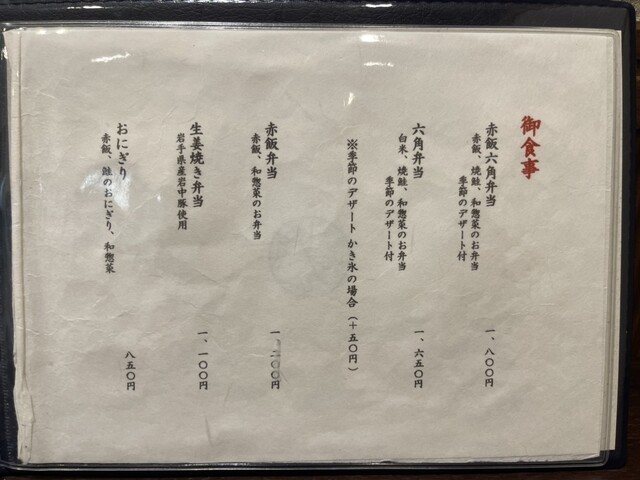 御食事
赤飯六角弁当
赤飯、焼鮭、和惣菜のお弁当
季節のデザート付
一、八〇〇円
六角弁当
白米、焼鮭、和惣菜のお弁当
季節のデザート付
一、六五〇円
※季節のデザート かき氷の場合(+五〇円)
赤飯弁当
赤飯、和惣菜のお弁当
一、二〇〇円
生姜焼き弁当
岩手県産岩中豚使用
一、一〇〇円
おにぎり
赤飯、鮭のおにぎり、和惣菜
八五〇円